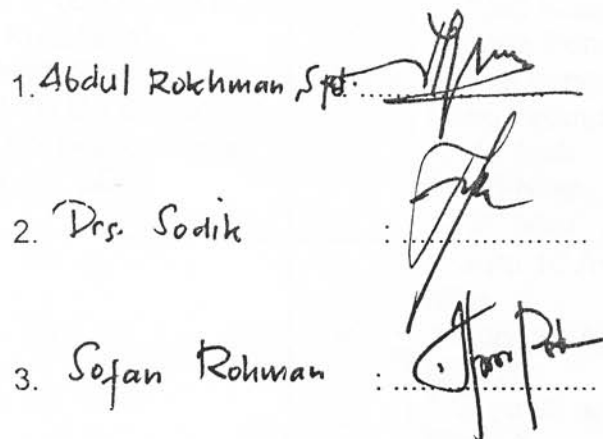 1. Abdul Rokhman Spd. :
2. Drs. Sodik :
3. Sofan Rohman :